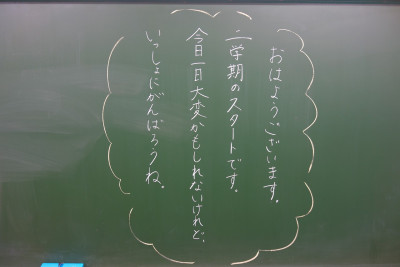 おはようございます。
二学期のスタートです。
今日一日大変かもしれないけれど、
いっしょにがんばろうね。